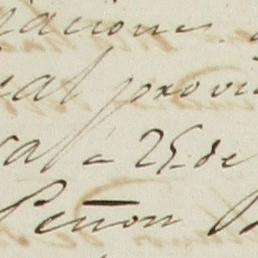 aciones
eal provi
cal a 25 de
Señon